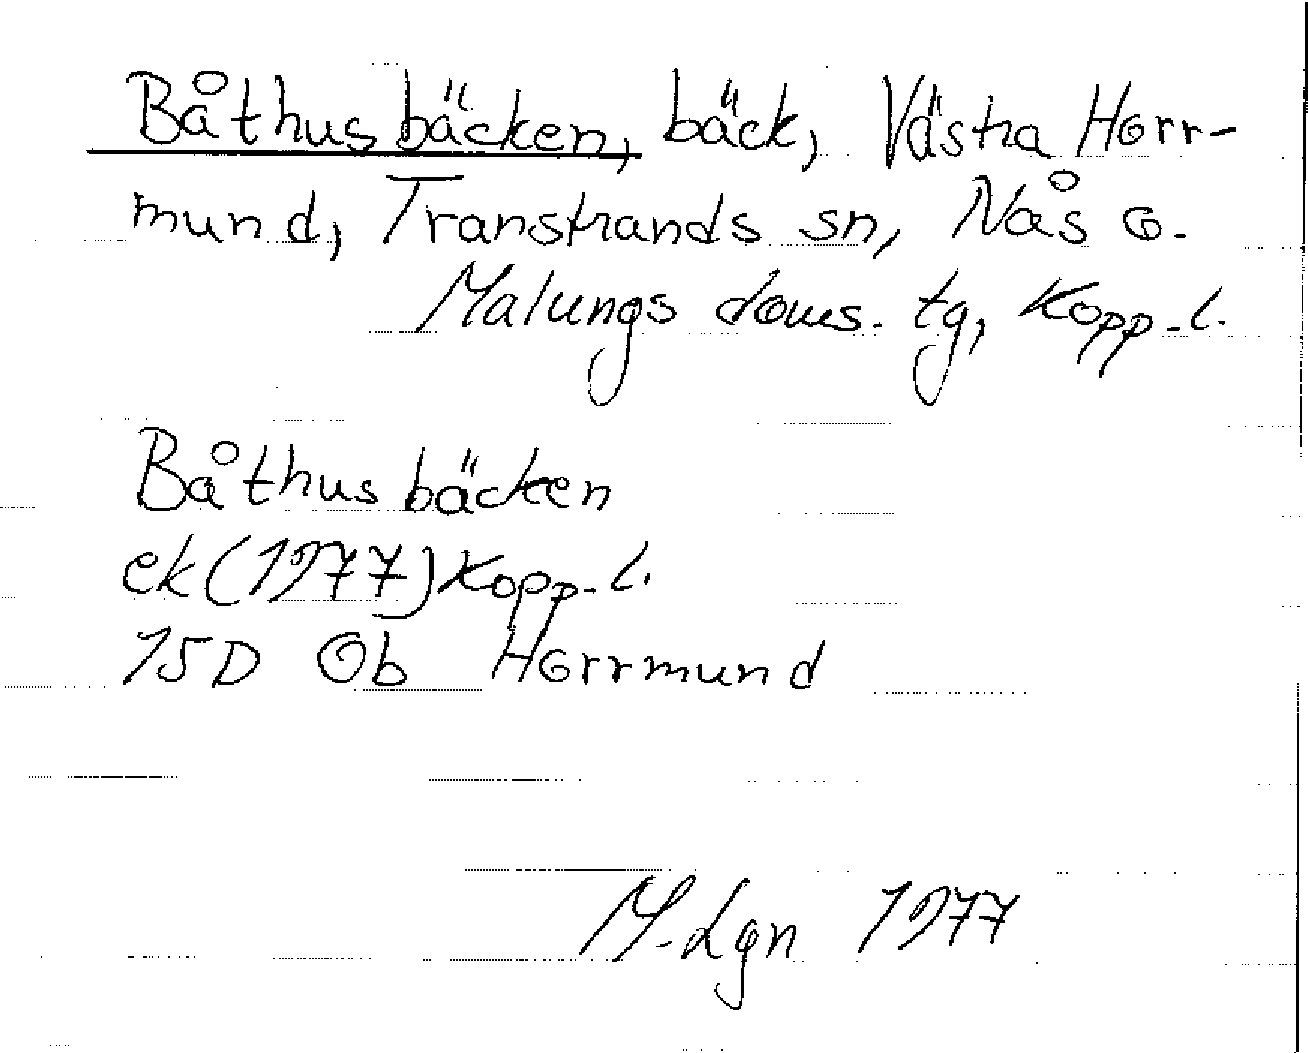 Båthusbäcken, bäck, Västra Horr-
mund, Transtrands sn, Nås o.
Malungs doms. tg, Kopp. l.
Båthusbäcken
ek (1977) Kopp. l.
15D Ob Horrmund
M. Lgn 1977